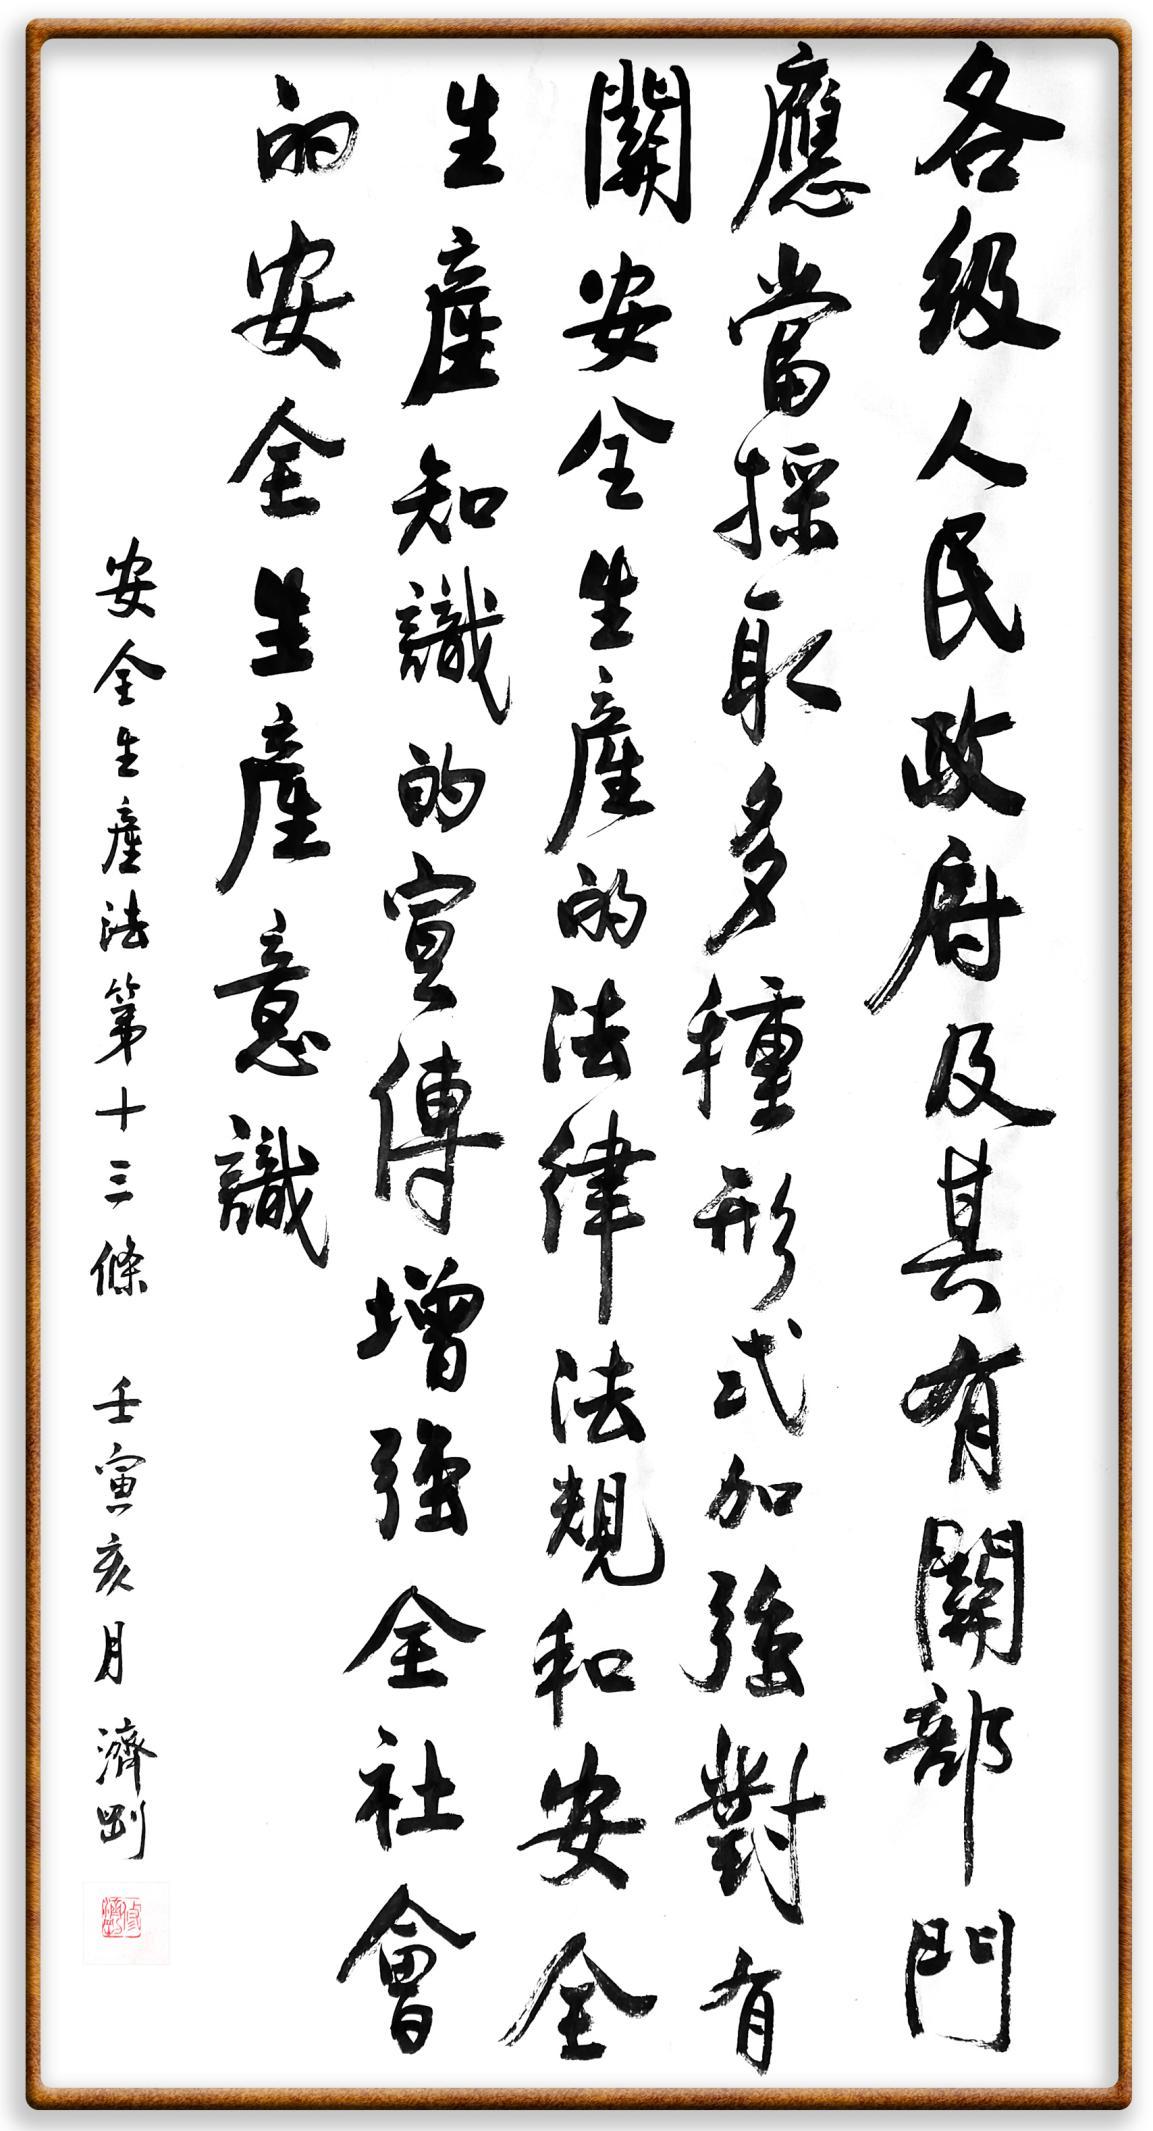 各級人民政府及其有關部門
應當採取多種形式加強對有
關安全生產的法律法規和安全
生產知識的宣傳增強全社會
的安全生產意識
安全生產法第十三條 壬寅亥月 濟剛